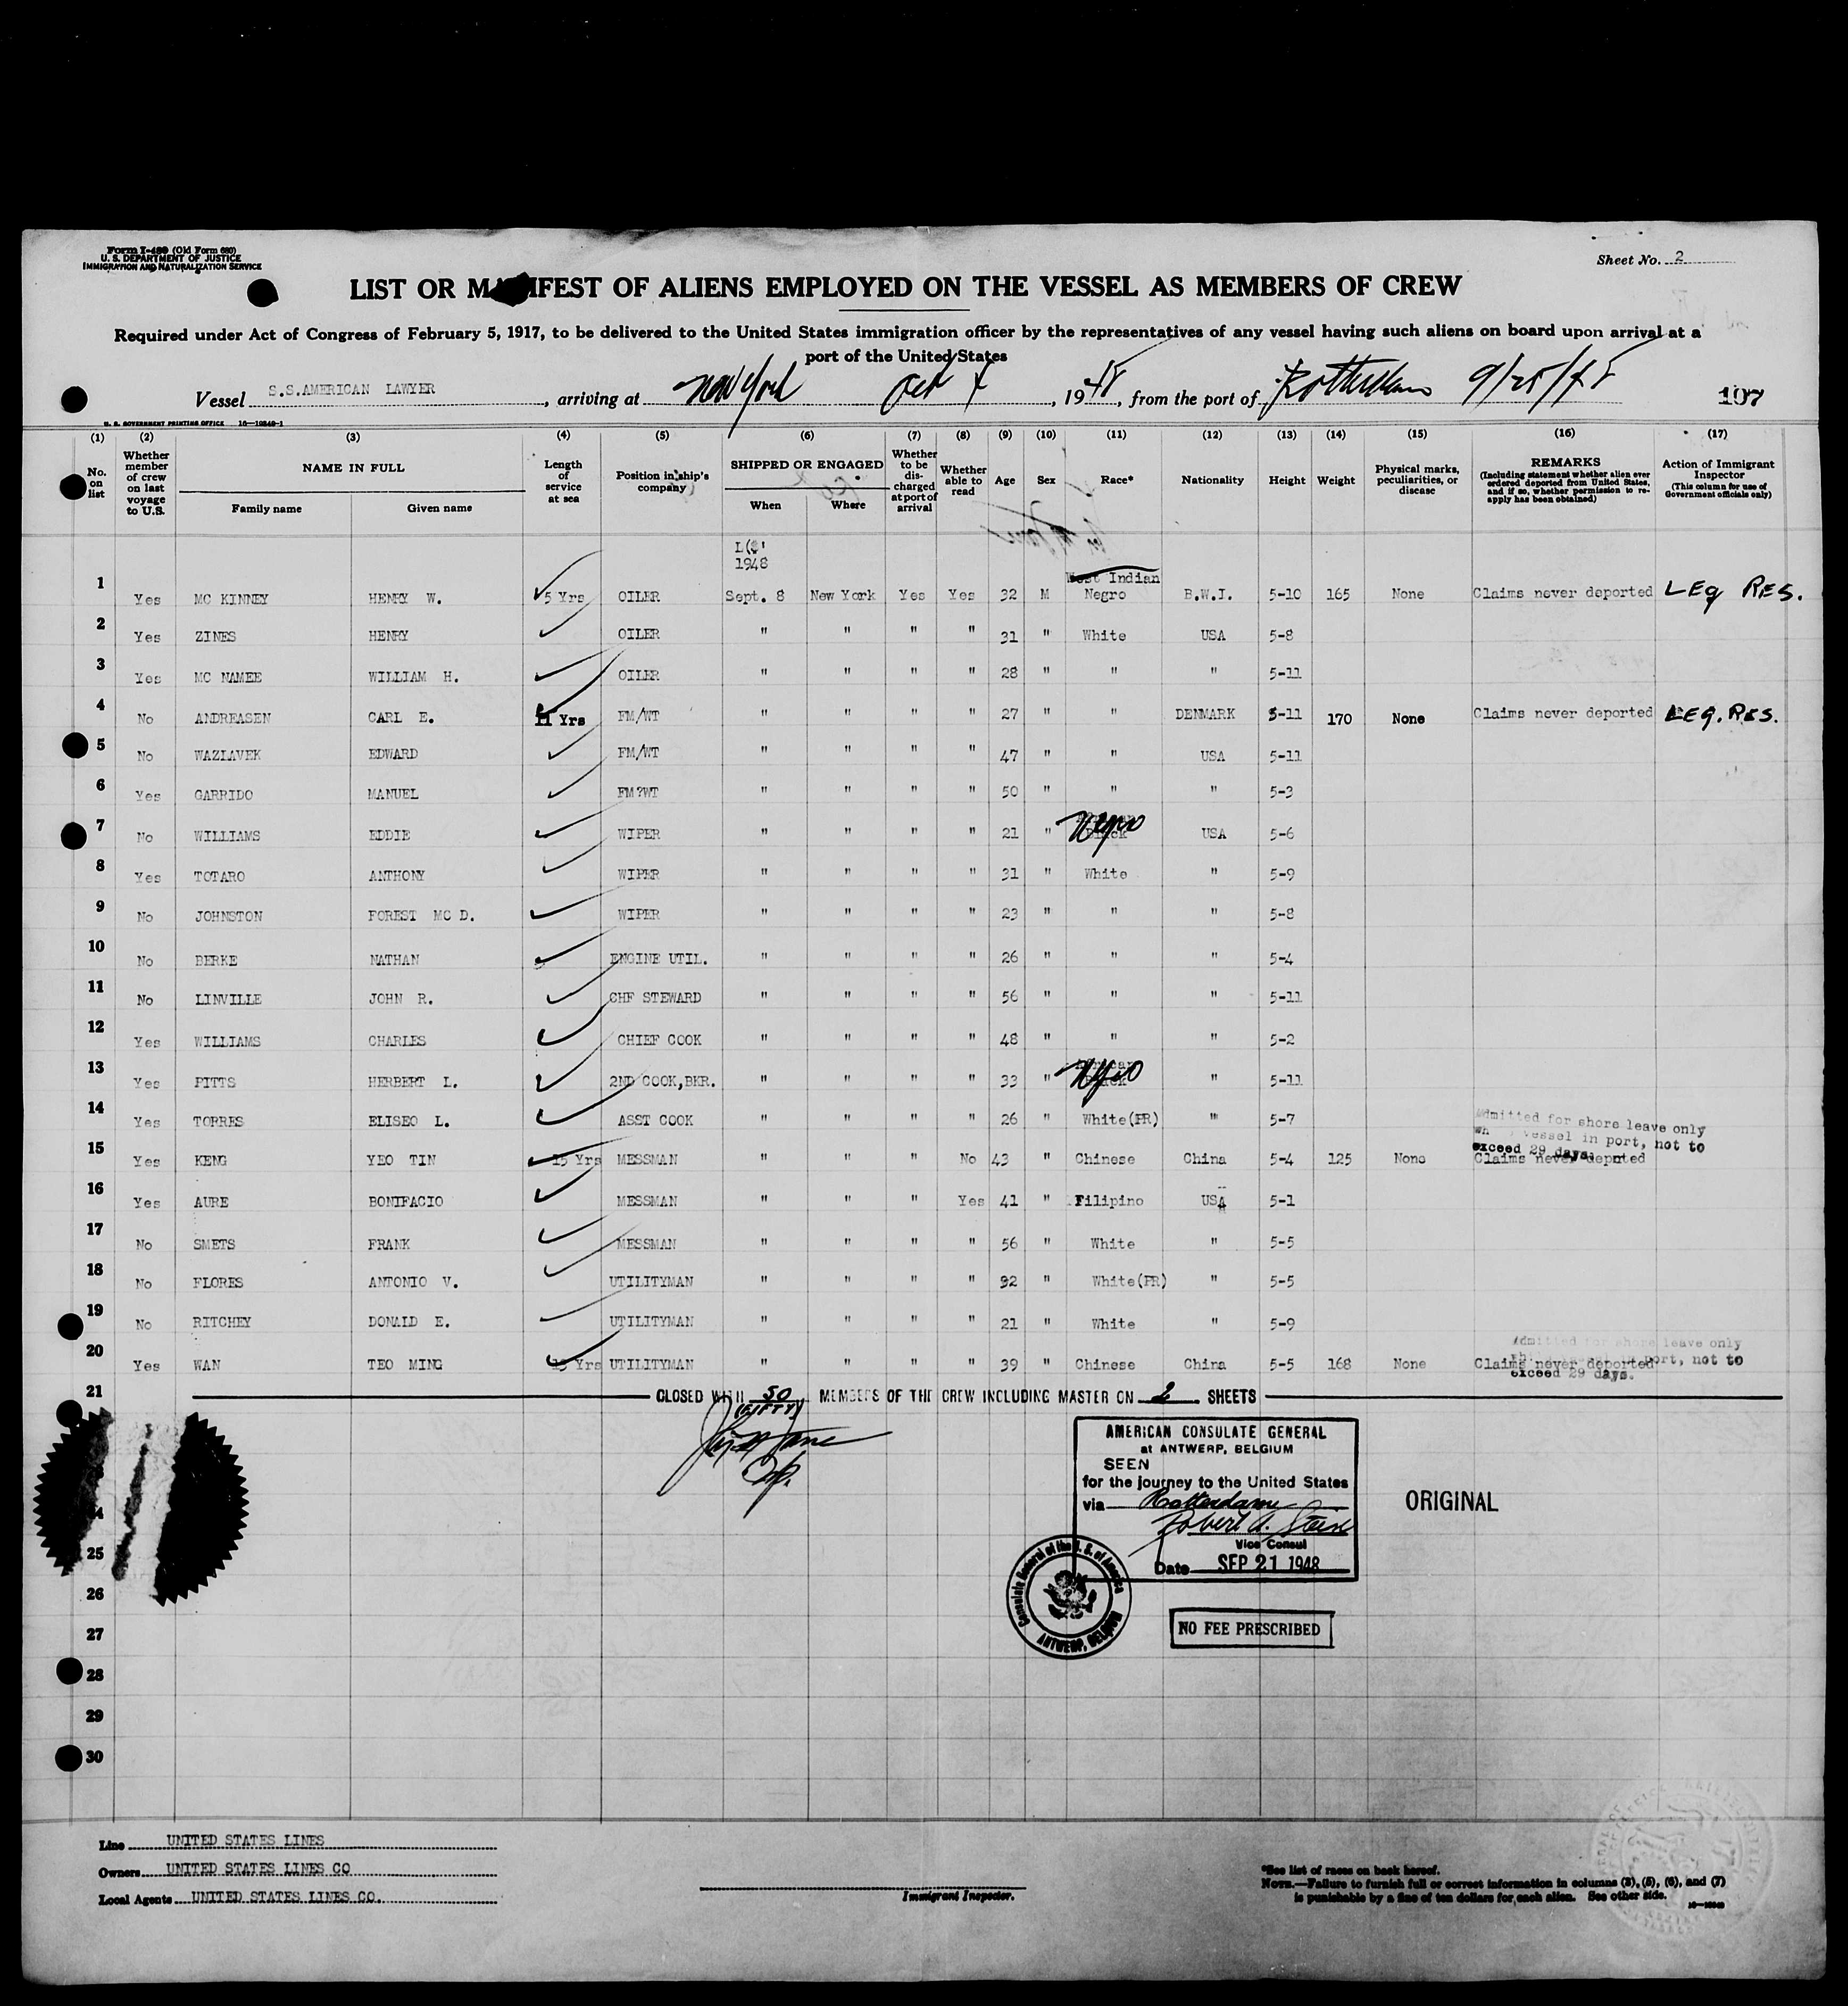 Form I-489 (Old Form 689)
U. S. DEPARTMENT OF JUSTICE
IMMIGRATION AND NATURALIZATION SERVICE
Sheet No. 2
LIST OR MANIFEST OF ALIENS EMPLOYED ON THE VESSEL AS MEMBERS OF CREW
Required under Act of Congress of February 5, 1917, to be delivered to the United States immigration officer by the representatives of any vessel having such aliens on board upon arrival at a
port of the United States
Vessel S.S.AMERICAN LAWYER, arriving at New York Oct 4, 1948, from the port of Rotterdam 9/25/48 107
U. S. GOVERNMENT PRINTING OFFICE 16—19849-1
(1) (2) (3) (4) (5) (6) (7) (8) (9) (10) (11) (12) (13) (14) (15) (16) (17)
No. on list
Whether member of crew on last voyage to U.S.
NAME IN FULL
Family name Given name
Length of service at sea
Position in ship's company
SHIPPED OR ENGAGED
When Where
Whether to be discharged at port of arrival
Whether able to read
Age
Sex
Race*
Nationality
Height
Weight
Physical marks, peculiarities, or disease
REMARKS
(Including statement whether alien ever ordered deported from United States, and if so, whether permission to reapply has been obtained)
Action of Immigrant Inspector
(This column for use of Government officials only)
1948
West Indian
1 Yes MC KINNEY HENRY W. 5 Yrs OILER Sept. 8 New York Yes Yes 32 M Negro B.W.I. 5-10 165 None Claims never deported LEG RES.
2 Yes ZINES HENRY OILER " " " " 31 " White USA 5-8
3 Yes MC NAMEE WILLIAM H. OILER " " " " 28 " " " 5-11
4 No ANDREASEN CARL E. 11 Yrs FM/WT " " " " 27 " " DENMARK 5-11 170 None Claims never deported LEG. RES.
5 No WAZLAVEK EDWARD FM/WT " " " " 47 " " USA 5-11
6 Yes GARRIDO MANUEL FM?WT " " " " 50 " " " 5-3
7 No WILLIAMS EDDIE WIPER " " " " 21 " Negro USA 5-6
8 Yes TOTARO ANTHONY WIPER " " " " 31 " White " 5-9
9 No JOHNSTON FOREST MC D. WIPER " " " " 23 " " " 5-8
10 No BERKE NATHAN ENGINE UTIL. " " " " 26 " " " 5-4
11 No LINVILLE JOHN R. CHF STEWARD " " " " 56 " " " 5-11
12 Yes WILLIAMS CHARLES CHIEF COOK " " " " 48 " " " 5-2
13 Yes PITTS HERBERT L. 2ND COOK,BKR. " " " " 33 " Negro " 5-11
14 Yes TORRES ELISEO L. ASST COOK " " " " 26 " White(PR) " 5-7
Admitted for shore leave only
vessel in port, not to
exceed 29 days.
15 Yes KENG YEO TIN 15 Yrs MESSMAN " " " No 43 " Chinese China 5-4 125 None Claims never deported
16 Yes AURE BONIFACIO MESSMAN " " " Yes 41 " Filipino USA 5-1
17 No SMETS FRANK MESSMAN " " " " 56 " White " 5-5
18 No FLORES ANTONIO V. UTILITYMAN " " " " " White(PR) " 5-5
19 No RITCHEY DONALD E. UTILITYMAN " " " " 21 " White " 5-9
Admitted for shore leave only
20 Yes WAN TEO MING Yrs UTILITYMAN " " " " 39 " Chinese China 5-5 168 None Claims never deported port, not to
exceed 29 days.
21 CLOSED WITH 50 MEMBERS OF THE CREW INCLUDING MASTER ON 2 SHEETS
(FIFTY)
AMERICAN CONSULATE GENERAL
at ANTWERP, BELGIUM
SEEN
for the journey to the United States
via Rotterdam
Robert A.
Vice Consul
Date SEP 21 1948
ORIGINAL
Consulate General of the U. S. of America
ANTWERP, BELGIUM
NO FEE PRESCRIBED
25
26
27
28
29
30
Line UNITED STATES LINES
Owners UNITED STATES LINES CO
Local Agents UNITED STATES LINES CO.
Immigrant Inspector.
*See list of races on back hereof.
NOTE.—Failure to furnish full or correct information in columns (3), (5), (6), and (7)
is punishable by a fine of ten dollars for each alien. See other side.